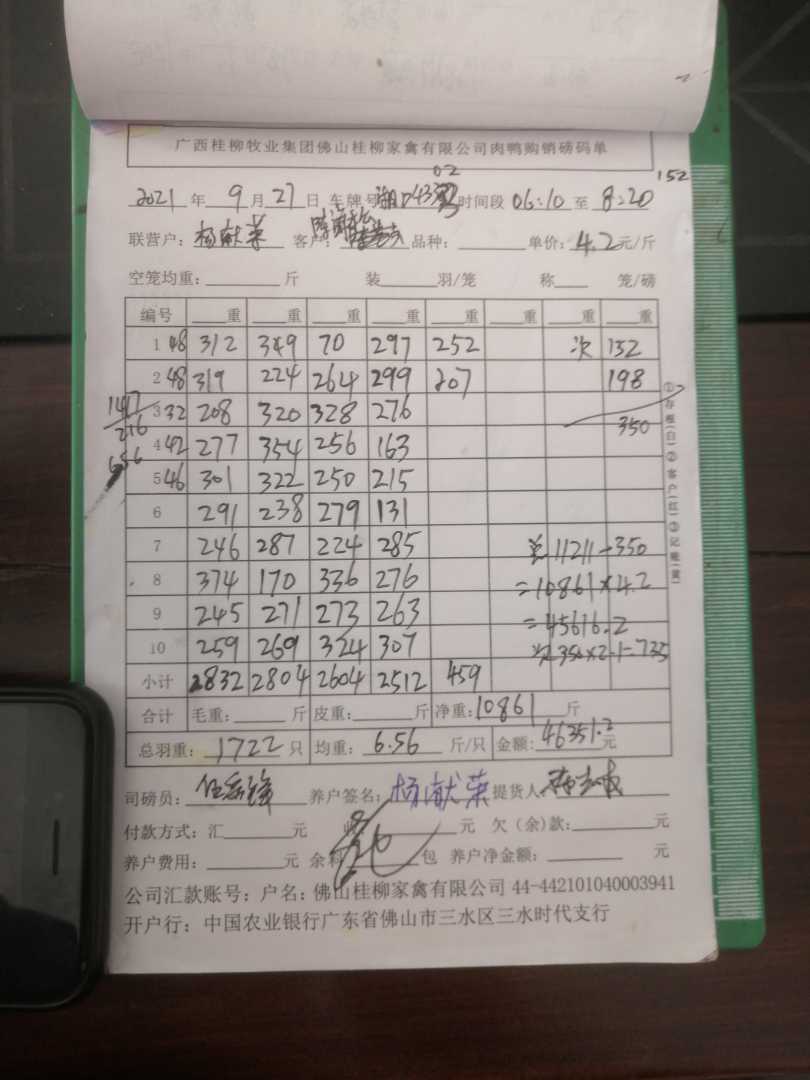 广西桂柳牧业集团佛山桂柳家禽有限公司肉鸭购销磅码单
02
152
2021 年 9 月 27 日 车牌号 湘D43 时间段 06:10 至 8:20
联营户: 杨献荣 客户: 品种: 单价: 4.2 元/斤
空笼均重: 斤 装 羽/笼 称 笼/磅
编号 重 重 重 重 重 重 重 重
1 48 312 349 70 297 252 次 152
2 48 319 224 264 299 207 198
1417 3 32 208 320 328 276
216 350
4 42 277 354 256 163
656 5 46 301 322 250 215
6 291 238 279 131
7 246 287 224 285 11211-350
8 374 170 336 276 =10861×4.2
9 245 271 273 263 =45616.2
10 259 269 324 307 次350×2.1=735
小计 2832 2804 2604 2512 459
合计 毛重: 斤 皮重: 斤 净重: 10861 斤
总羽重: 1722 只 均重: 6.56 斤/只 金额: 46351.2 元
司磅员: 养户签名: 杨献荣 提货人
付款方式: 汇 元 元 欠(余)款: 元
养户费用: 元 余料 包 养户净金额: 元
公司汇款账号: 户名: 佛山桂柳家禽有限公司 44-442101040003941
开户行: 中国农业银行广东省佛山市三水区三水时代支行
①存根(白)②客户(红)③记账(黄)